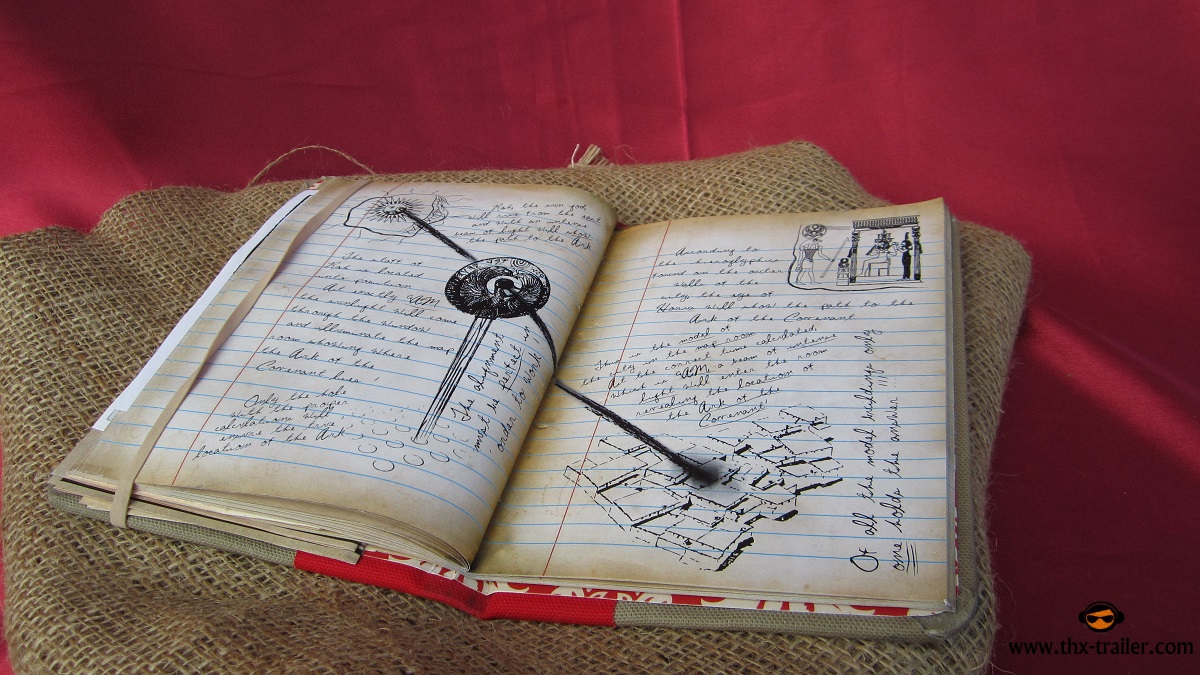 Ra's the sun god,
will from the sun
and with an intense
beam of light will show
the path to the Ark
The staff of
Ra is located
into position
At exactly 9AM
the sunlight will come
through the window
and illuminate the map
room showing where
the Ark of the
Covenant lies!
Only the hole
with the proper
calculations will
ensure the true
location of the Ark
The alignment
must be perfect in
order to work
According to
the hieroglyphics
found on the outer
walls of the
city the eye of
Horus will show the path to the
Ark of the Covenant
This is the model of
the city in the map room
At the correct time calculated,
which is 9AM a beam of intense
light will enter the room
revealing the location of
the Ark of the
Covenant
Of all the model buildings only
one holds the answer !!!!
www.thx-trailer.com